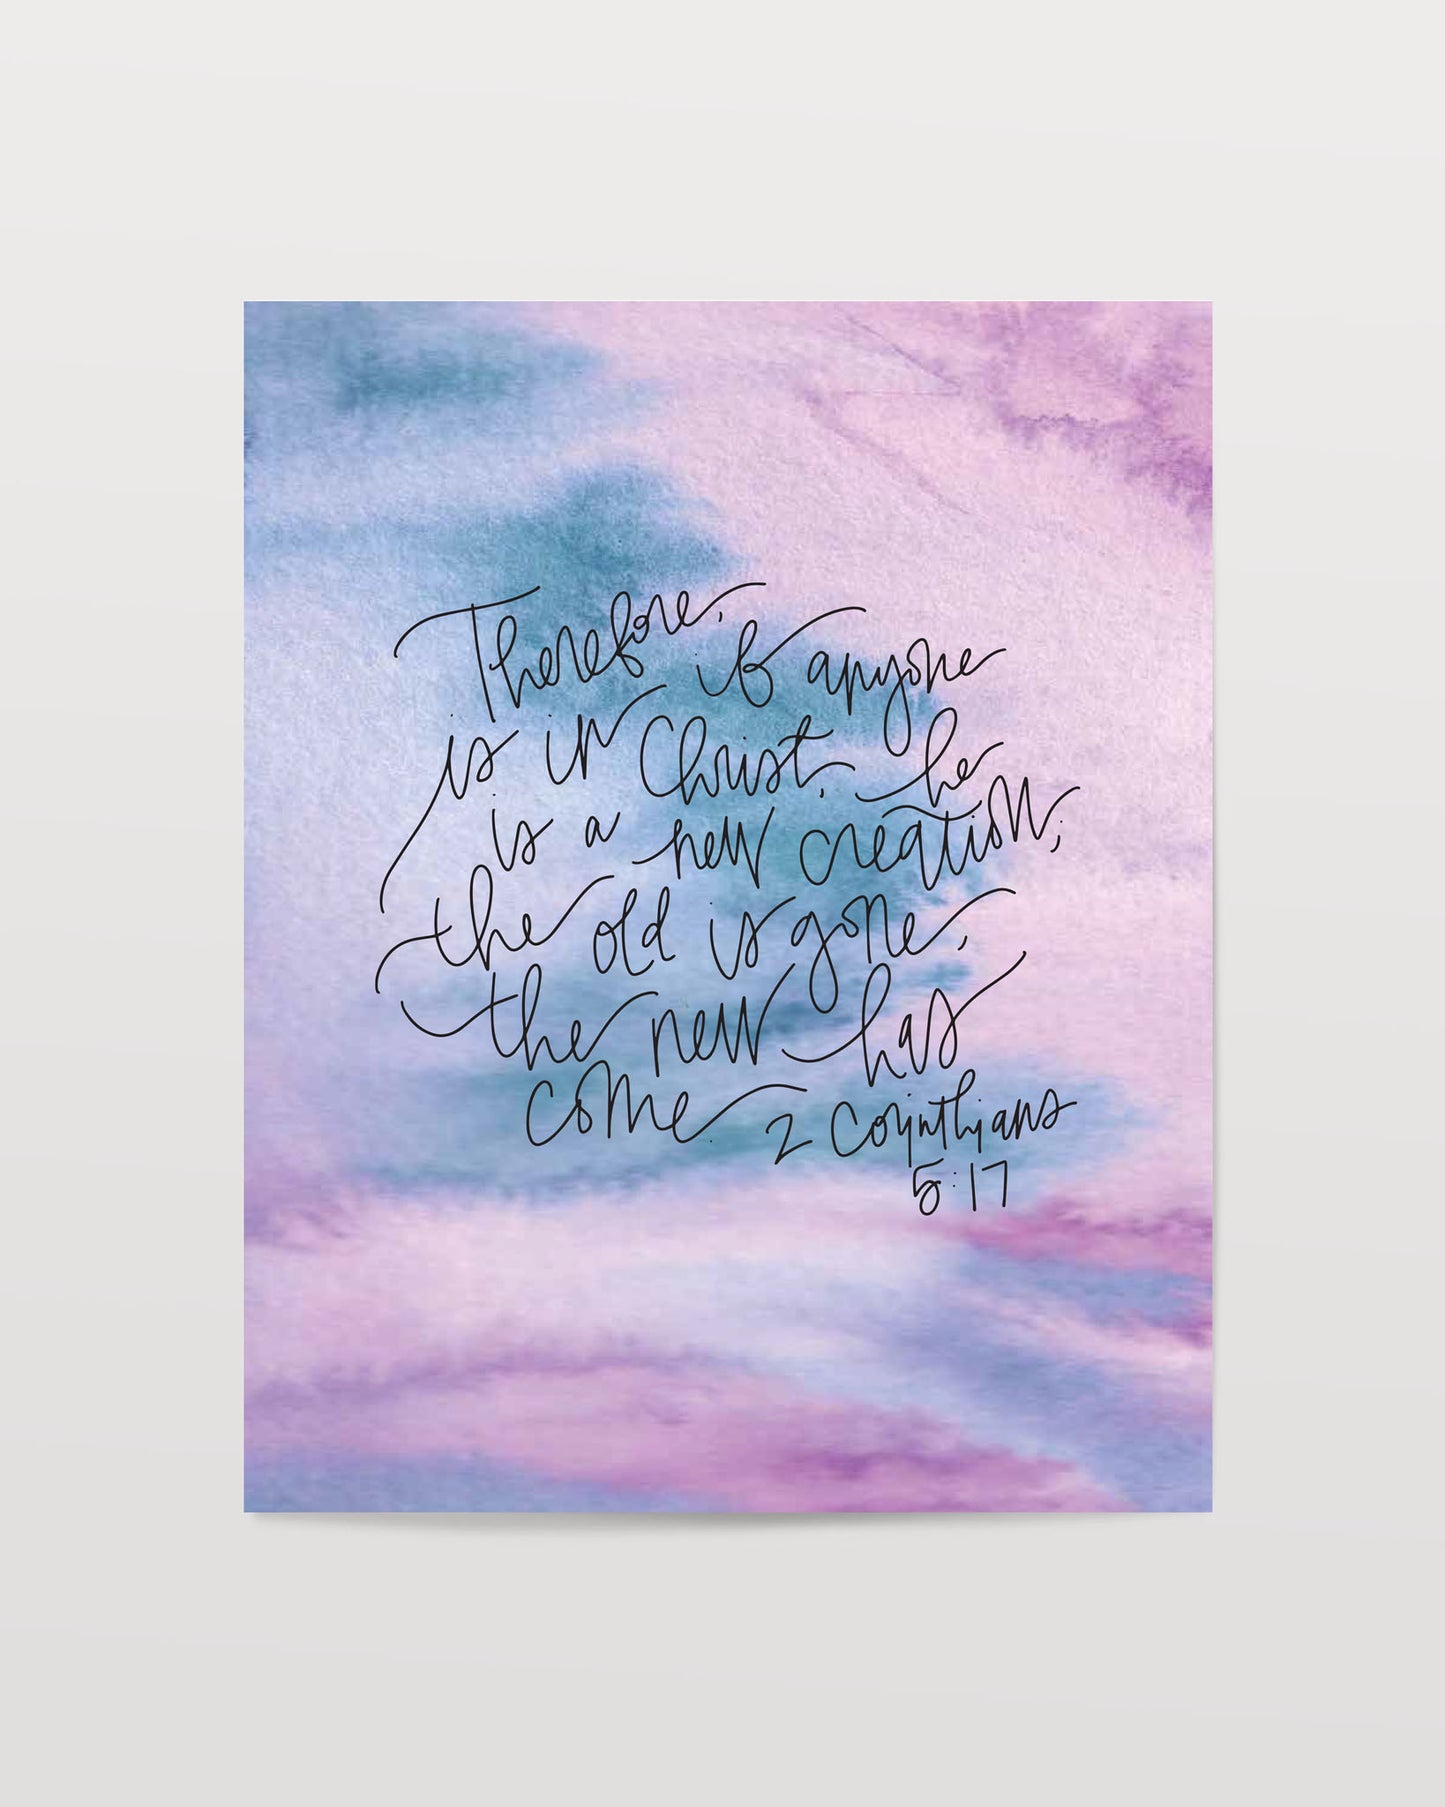 Therefore, if anyone
is in Christ, he
is a new creation;
the old is gone,
the new has
come. 2 Corinthians
5:17